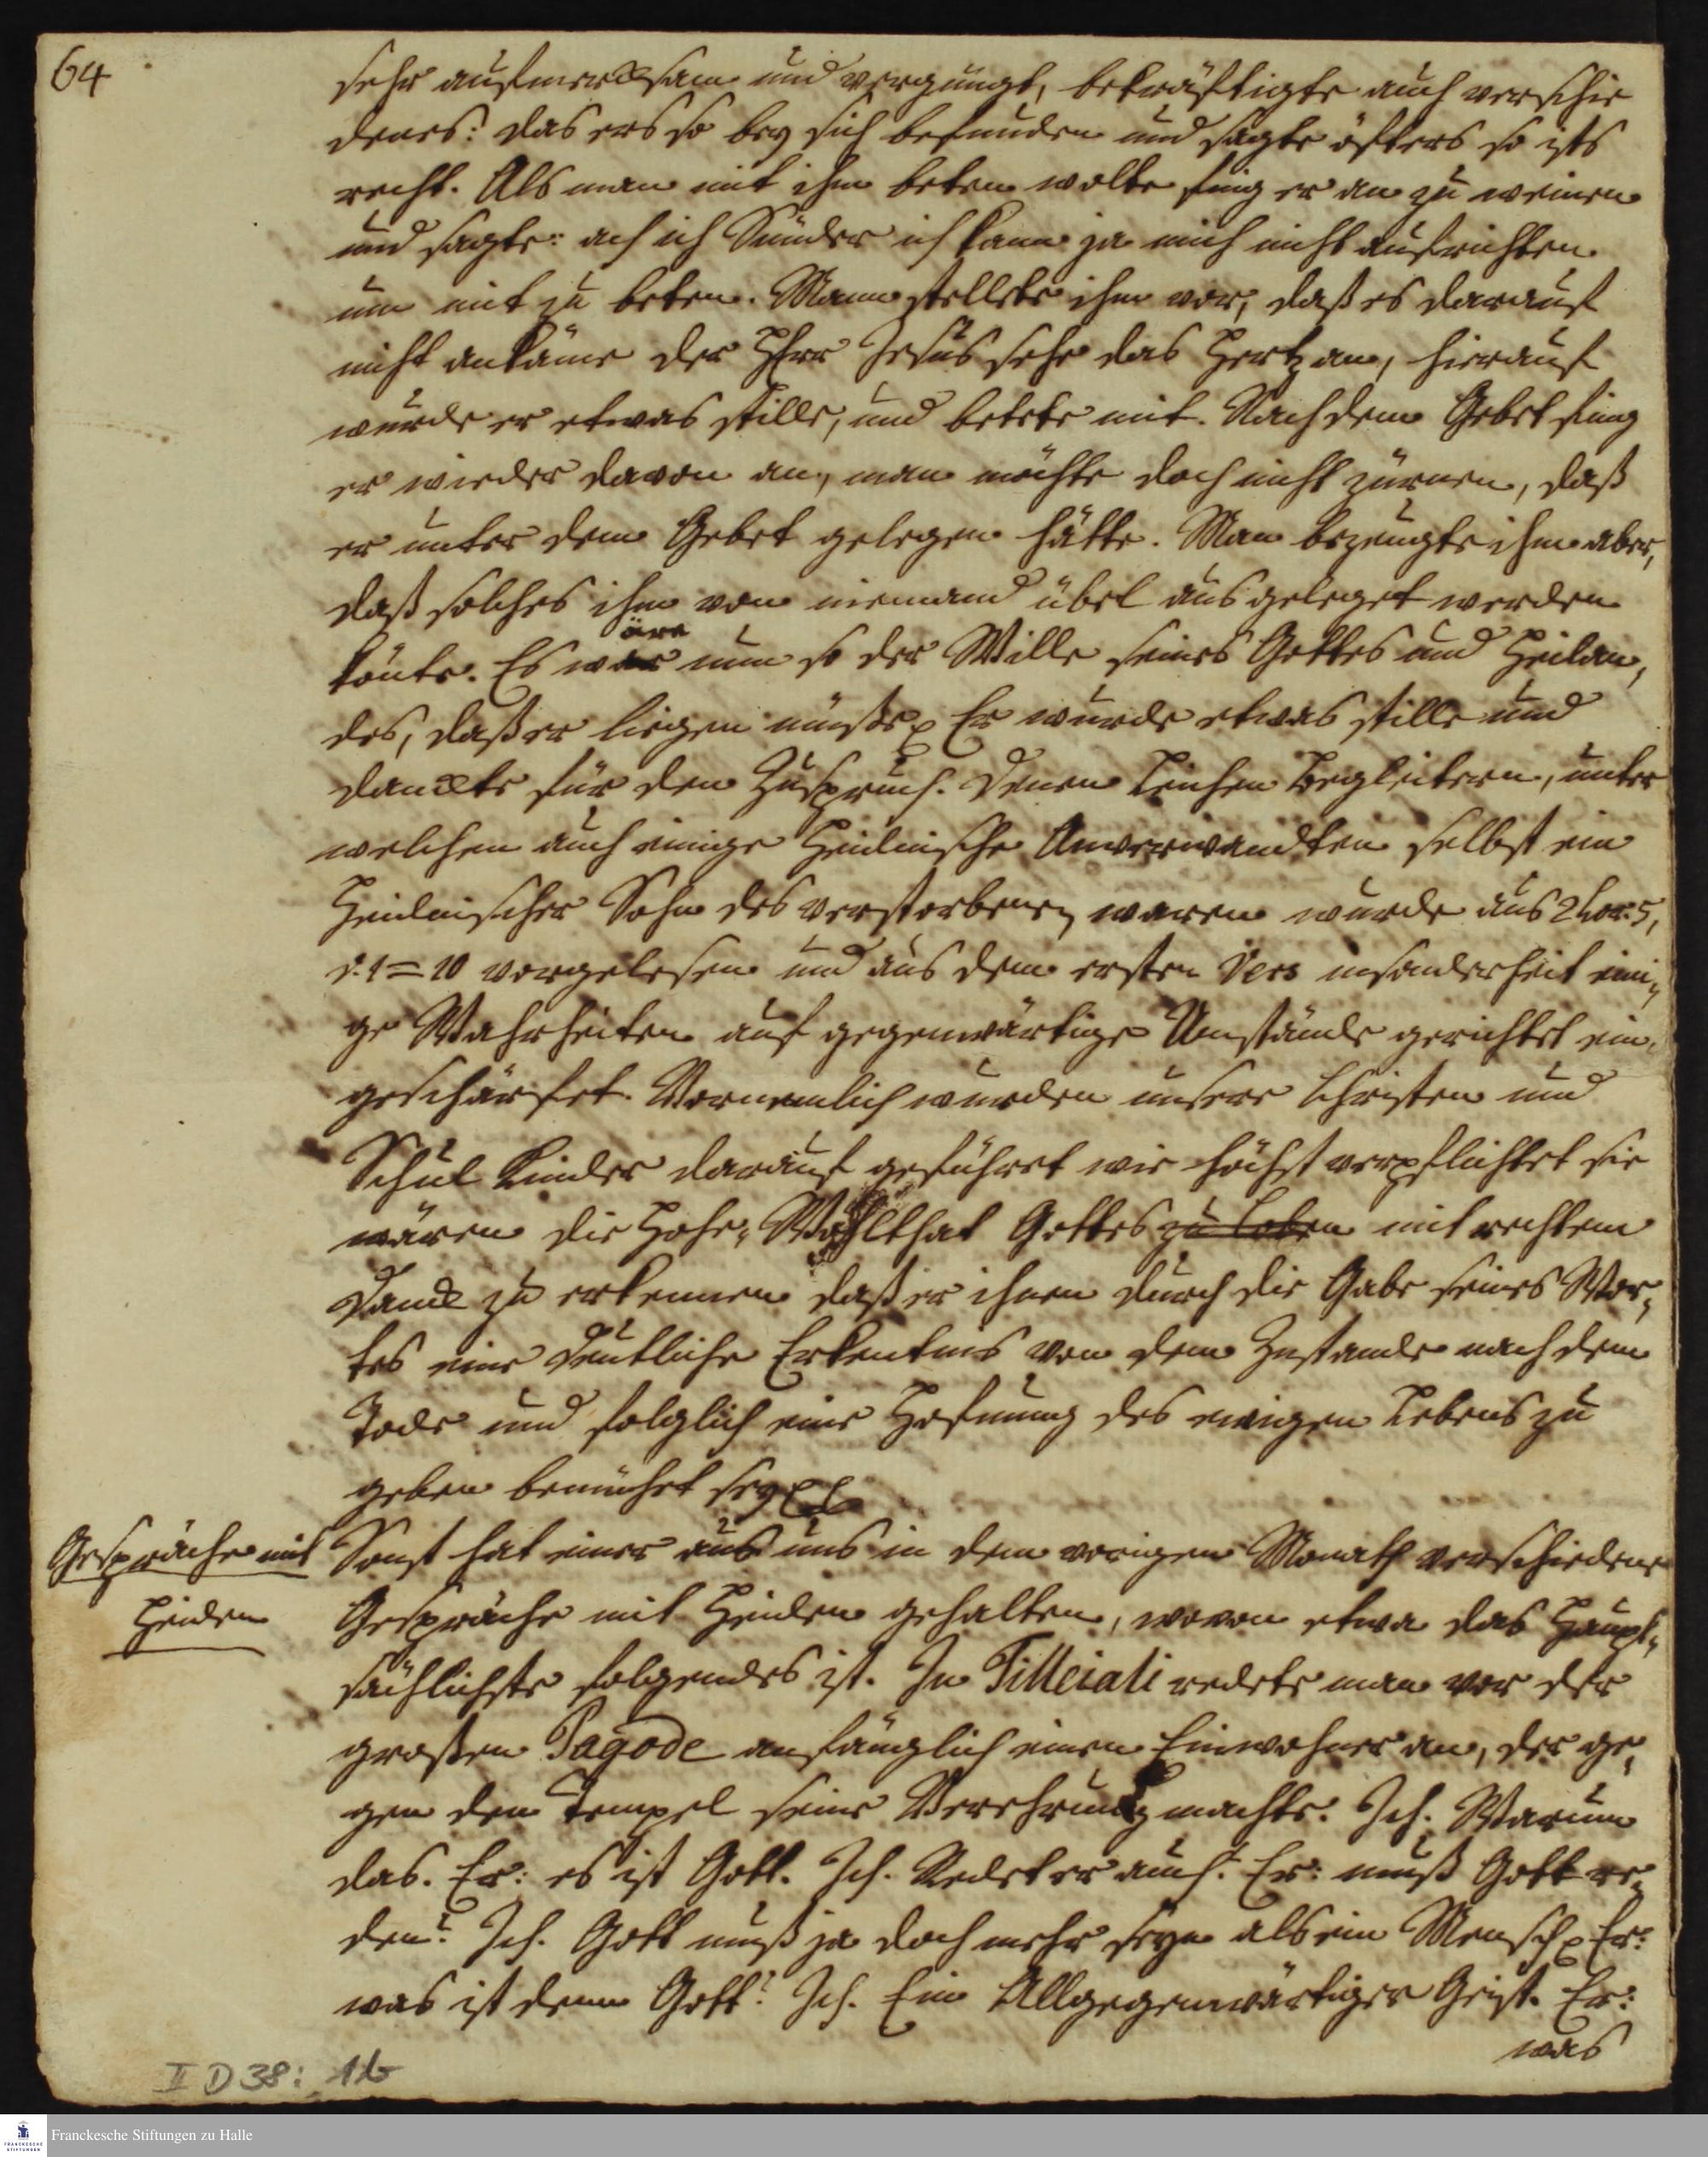 64
sehr aufmercksam und vergnügt, bekräftigte auch verschie
denes: das ers so bey sich befunden und sagte öfters so ists
recht. Als man mit ihm beten wolte fing er an zu weinen
und sagte: ach ich Sünder ich kann ja mich nicht aufrichten
um mit zu beten. Mann stellete ihm vor, daß es darauf
nicht ankäme der HErr Jesus sehe das Hertz an, hierauf
wurde er etwas stille, und betete mit. Nach dem Gebet fing
er wieder davon an, man möchte doch nicht zürnen, daß
er unter dem Gebet gelegen hätte. Man bezeugte ihm aber,
daß solches ihm von niemand übel ausgeleget werden
könte. Es wäre nun so der Wille seines Gottes und Heilan,
des, daß er liegen müßte Er wurde etwas stille und
danckte für den Zuspruch. Denen Leichen Begleitern, unter
welchen auch einige Heidnische Anverwandten selbst ein
Heidnischer Sohn des verstorbenen waren wurde aus 2 Cor. 5,
v. 1=10 vorgelesen und aus dem ersten Vers insonderheit eini„
ge Wahrheiten auf gegenwärtige Umstände gerichtet ein„
geschärfet. Vornemlich wurden unsere Christen und
Schul Kinder darauf geführet wie höchst verpflichtet sie
wären die Hohe„ Wohlthat Gottes zu loben mit rechtem
Danck zu erkennen daß er ihnen durch die Gabe seines Wor„
tes eine deutliche Erkentnis von dem Zustande nach dem
Tode und folglich eine Hofnung des ewigen Lebens zu
geben bemühet sey
Gespräche mit
Heiden
Sonst hat einer aus uns in dem vorigen Monath verschiedene
Gespräche mit Heiden gehalten, wovon etwa das Haupt„
sächlichste folgendes ist. In Tilleiali redete man vor der
großen Pagode anfänglich einen Einwohner an, der ge„
gen den Tempel seine Verehrung machte. Ich. Warum
das. Er: es ist Gott. Ich. Redet er auch? Er: muß Gott re„
den? Ich. Gott muß ja doch mehr seyn als ein Mensch Er:
was ist denn Gott? Ich. Ein Allgegenwärtiger Geist. Er:
was
II D 38: 1b
FRANCKESCHE STIFTUNGEN
Franckesche Stiftungen zu Halle